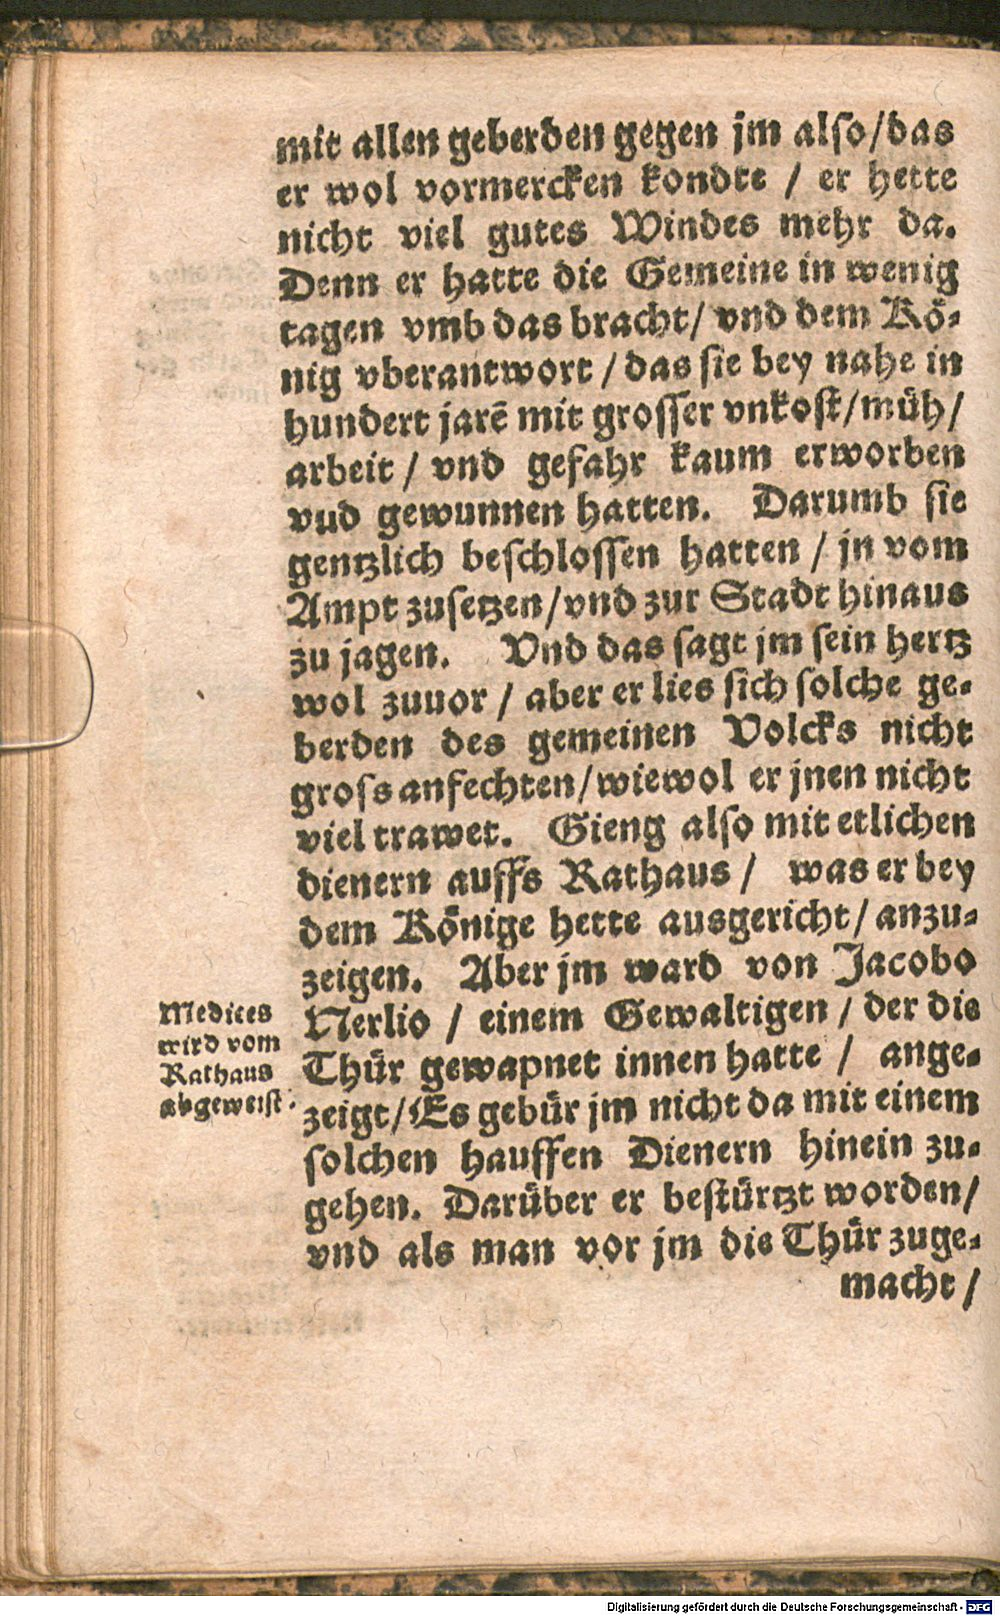 mit allen geberden gegen jm also/das
er wol vormercken kondte / er hette
nicht viel gutes Windes mehr da.
Denn er hatte die Gemeine in wenig
tagen vmb das bracht/ vnd dem Kö-
nig vberantwort / das sie bey nahe in
hundert jarē mit grosser vnkost/müh/
arbeit / vnd gefahr kaum erworben
vud gewunnen hatten. Darumb sie
gentzlich beschlossen hatten / jn vom
Ampt zusetzen/vnd zur Stadt hinaus
zu jagen. Vnd das sagt jm sein hertz
wol zuuor / aber er lies sich solche ge-
berden des gemeinen Volcks nicht
gross anfechten/wiewol er jnen nicht
viel trawet. Gieng also mit etlichen
dienern auffs Rathaus / was er bey
dem Könige hette ausgericht/ anzu-
zeigen. Aber jm ward von Jacobo
Nerlio / einem Gewaltigen / der die
Thür gewapnet innen hatte / ange-
zeigt/Es gebür jm nicht da mit einem
solchen hauffen Dienern hinein zu-
gehen. Darüber er bestürtzt worden/
vnd als man vor jm die Thür zuge-
macht /
Medices
wird vom
Rathaus
abgeweist.
Digitalisierung gefördert durch die Deutsche Forschungsgemeinschaft - DFG